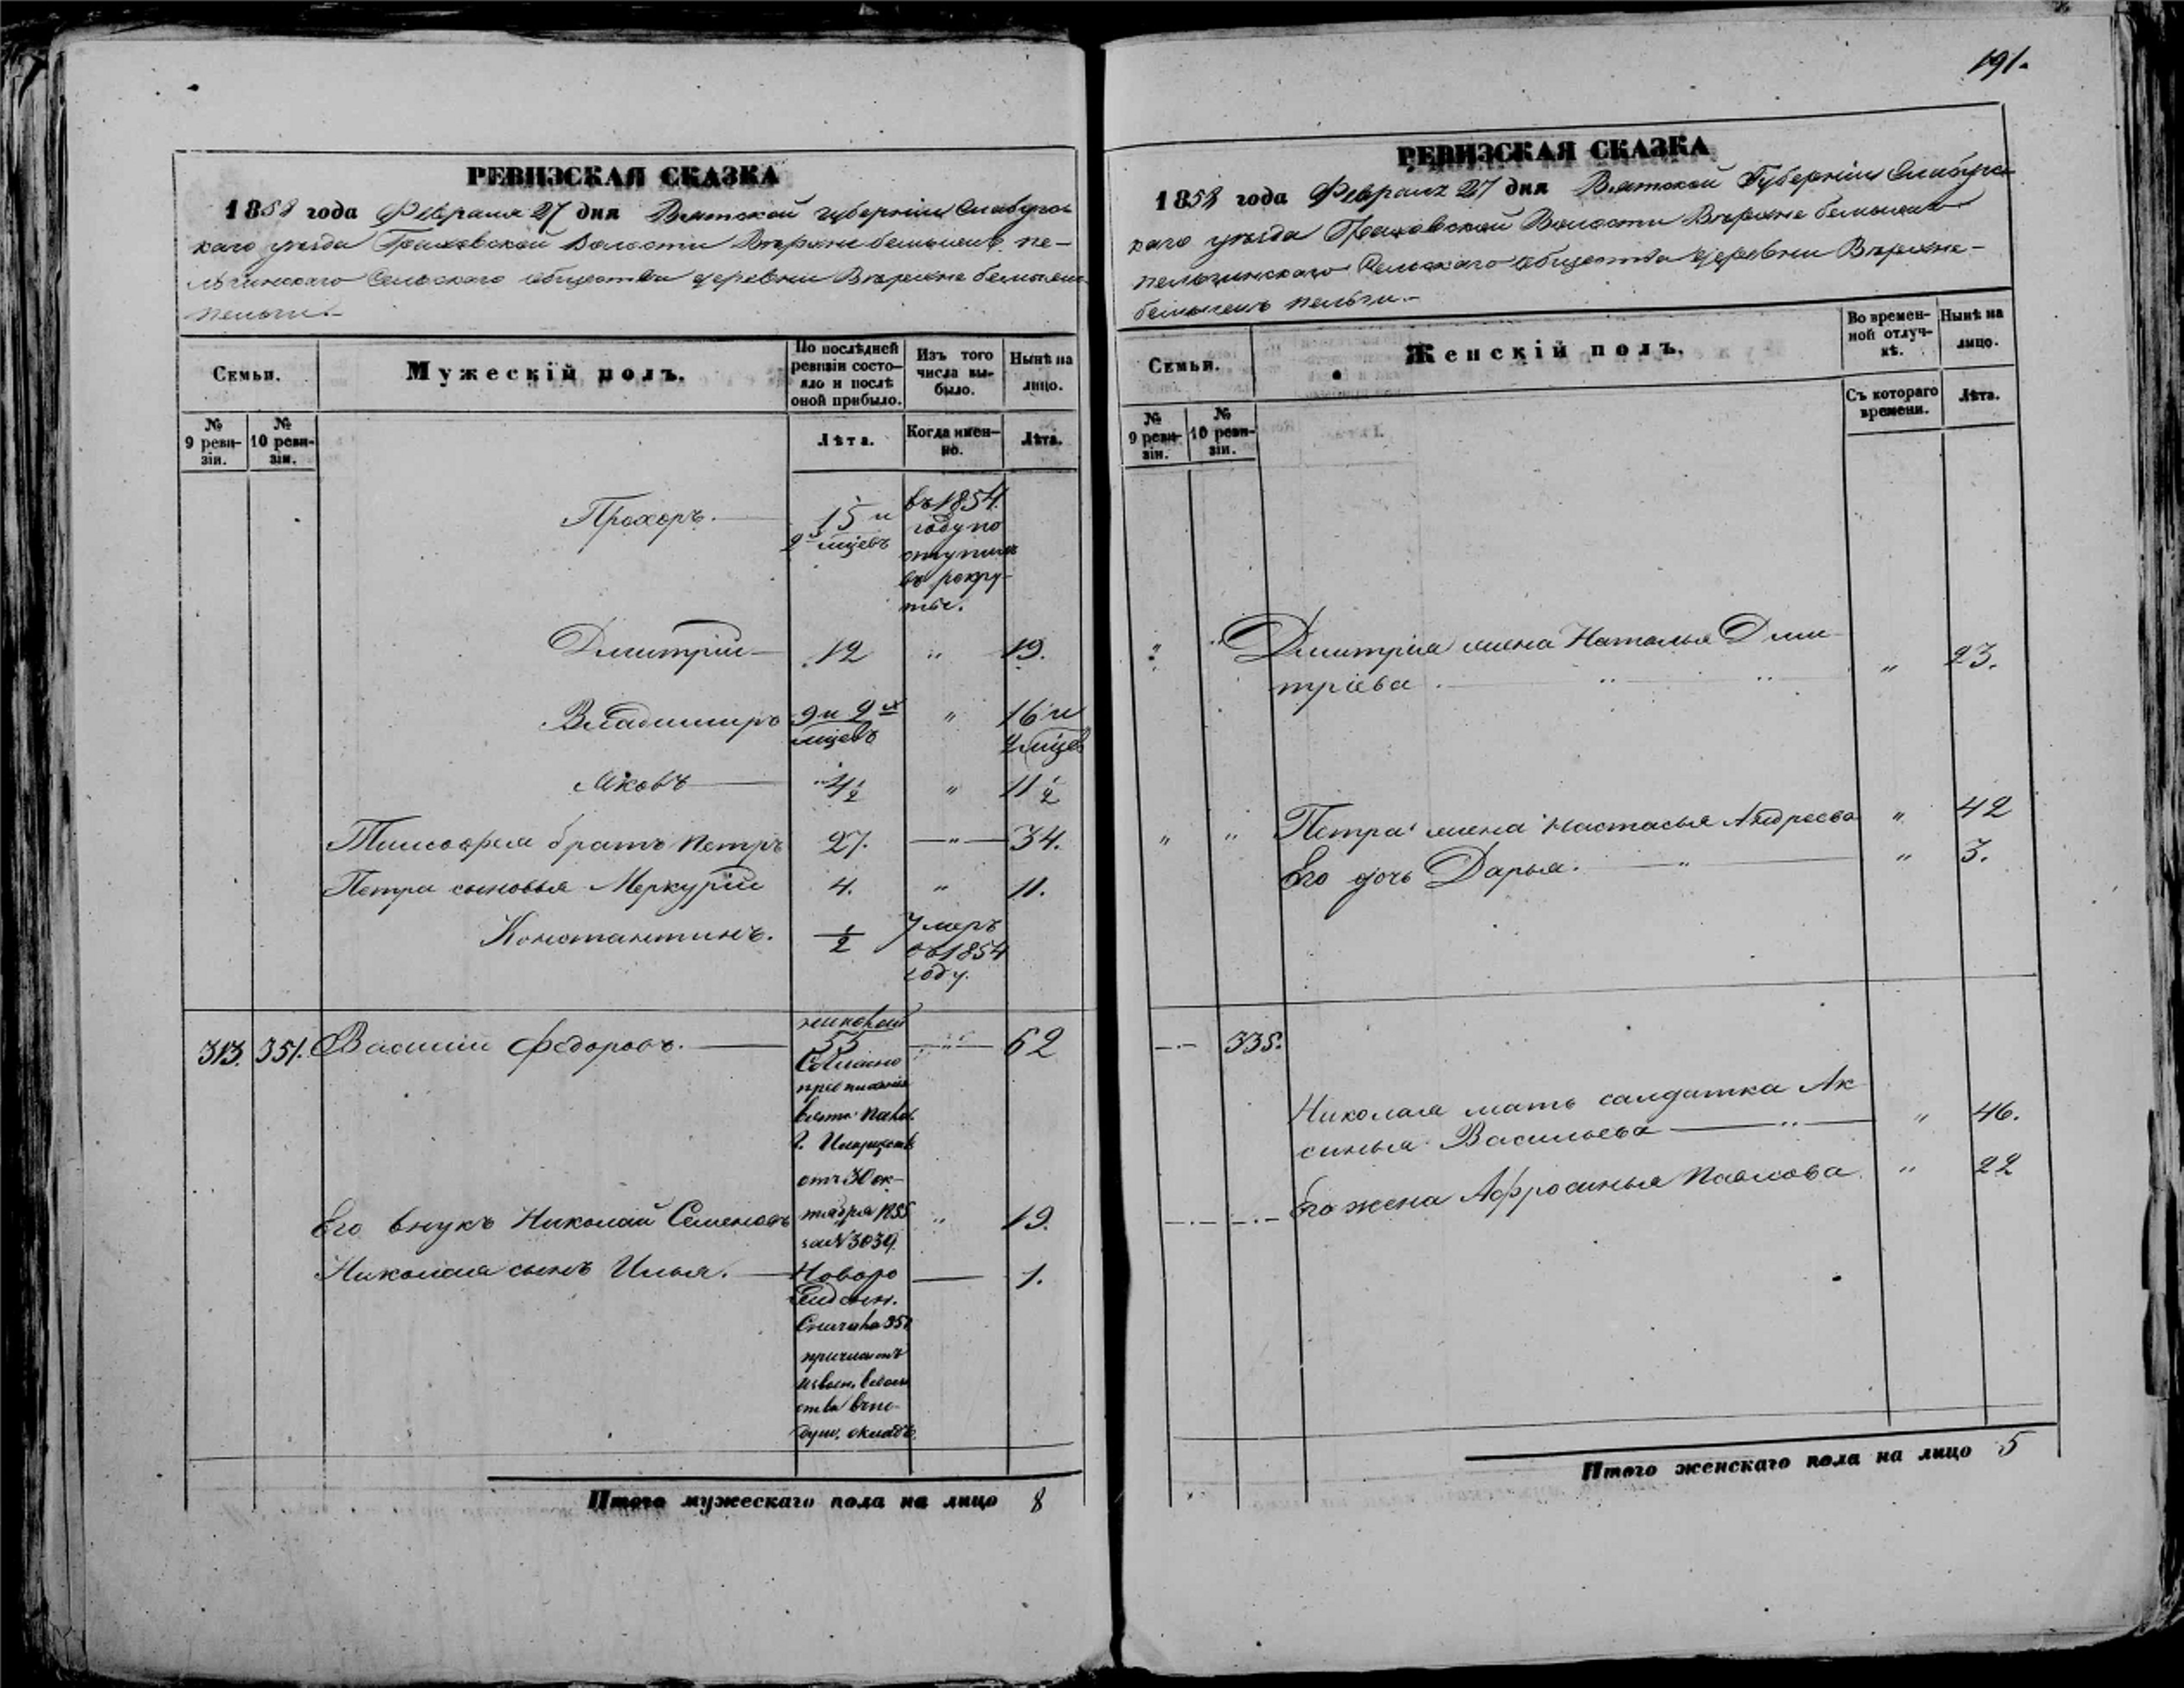 РЕВИЗСКАЯ СКАЗКА
1858 года Февраля 27 дня Вятской губернiи Елабугс-
каго уѣзда Граховской Волости Верхне бемыжъ пе-
льгинскаго Сельскаго общества деревни Верхне бемыжъ
пельги.-
Семьи.
Мужескій полъ.
По послѣдней ревизіи состояло и послѣ оной прибыло.
Изъ того числа выбыло.
Нынѣ на лицо.
№ 9 ревизіи.
№ 10 ревизіи.
Лѣта.
Когда именно.
Лѣта.
Прохоръ. 15 и въ 1854
2 мцевъ году по
ступилъ
въ рекру-
ты.
Дмитрій 12 " 19.
Владимиръ 9 и 9 " 16 и
мцевъ мцев
Яковъ 4 1/2 " 11 1/2
Тимофея братъ Петръ 27. " 34.
Петра сыновья Меркурій 4. " 11.
Константинъ. 1/2 Умеръ
въ 1854
году.
313. 351. Василій Федоровъ. 55 " 62
Согласно
предписанія
отъ 30 ок-
Его внукъ Николай Семеновъ тября 1855 " 19.
за № 3039
Николая сынъ Илья. Новоро 1.
жденн.
окладъ.
Итого мужескаго пола на лицо 8
191.
РЕВИЗСКАЯ СКАЗКА
1858 года Февраля 27 дня Вятской Губернiи Елабугс-
каго уѣзда Граховской Волости Верхне бемыжъ-
пельгинскаго Сельскаго общества деревни Верхне-
бемыжъ пельги.-
Семьи.
Женскій полъ.
Во временной отлучкѣ.
Нынѣ на лицо.
№ 9 ревизіи.
№ 10 ревизіи.
Съ котораго времени.
Лѣта.
" " Дмитрія жена Наталья Дми-
тріева. " 23.
" " Петра жена Настасья Андреева " 42
Его дочь Дарья. " 3.
335.
Николая мать салдатка Ак-
синья Васильева " 46.
Его жена Афросинья Павлова " 22
Итого женскаго пола на лицо 5